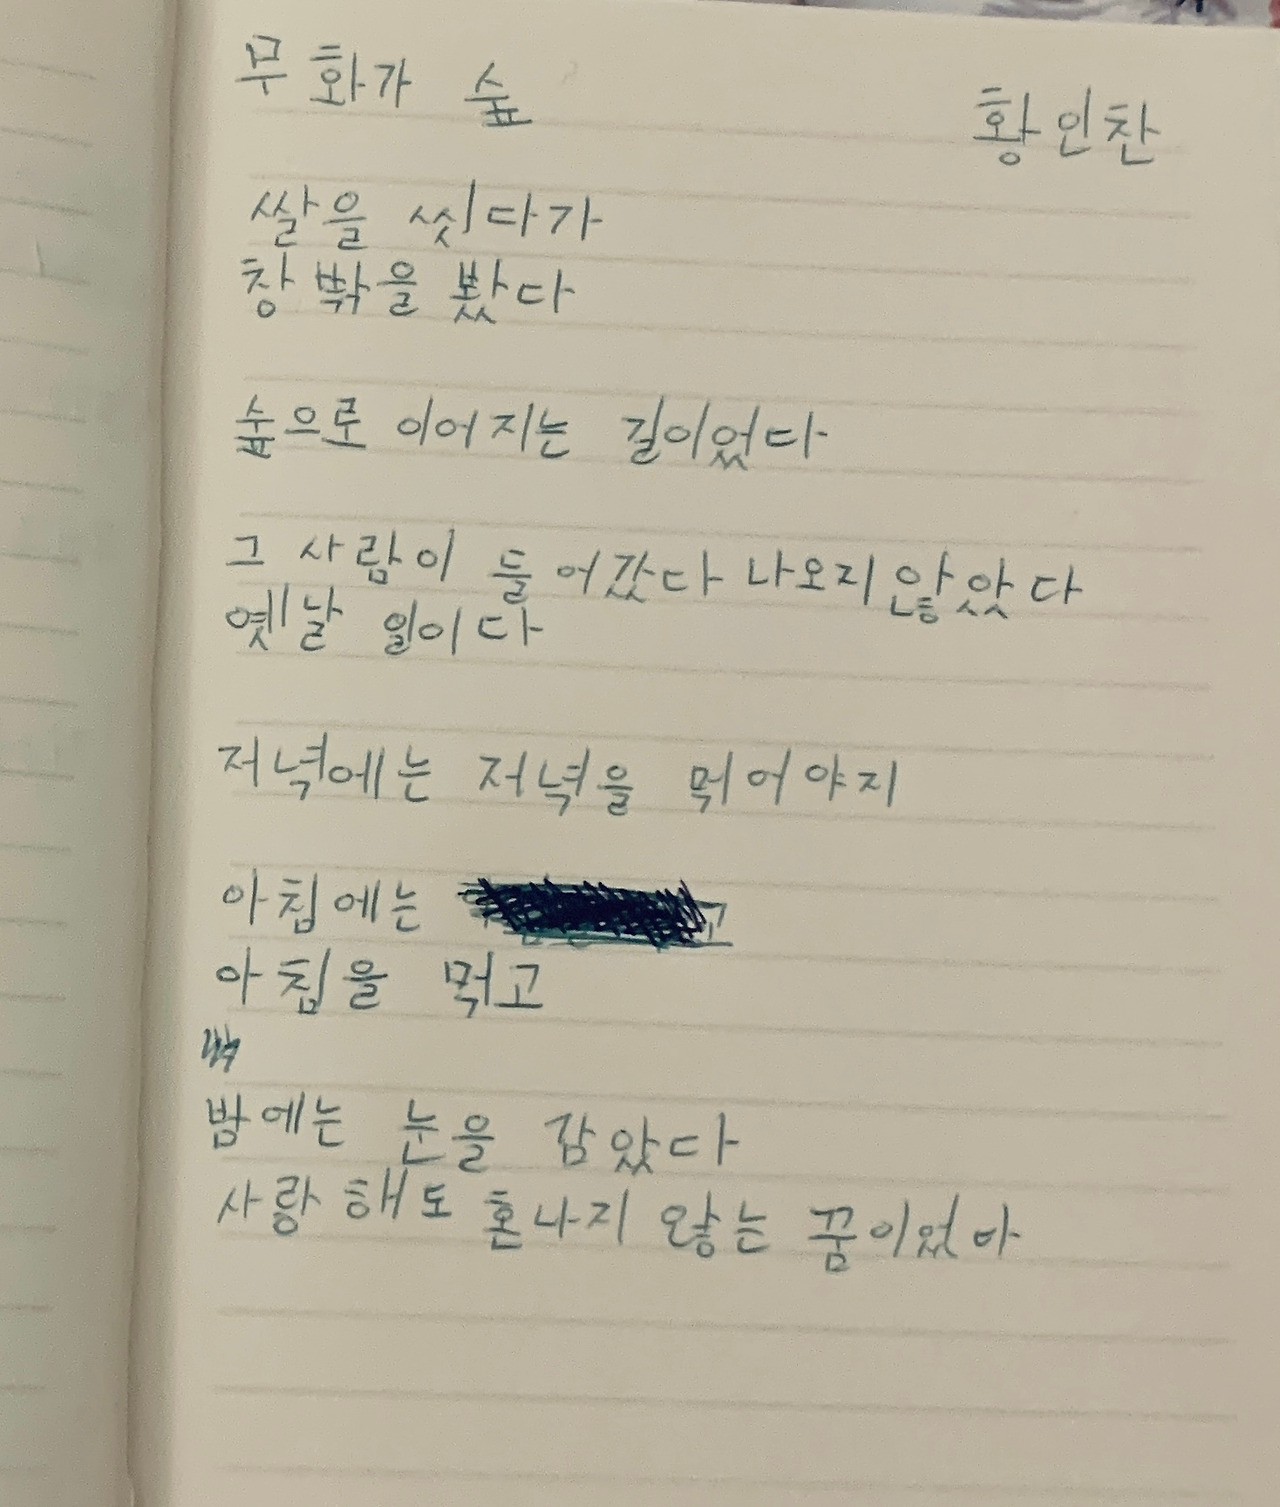 무화가 숲
황인찬
쌀을 씻다가
창 밖을 봤다
숲으로 이어지는 길이었다
그 사람이 들어갔다 나오지 않았다
옛날 일이다
저녁에는 저녁을 먹어야지
아침에는
아침을 먹고
밤에는 눈을 감았다
사랑해도 혼나지 않는 꿈이었다